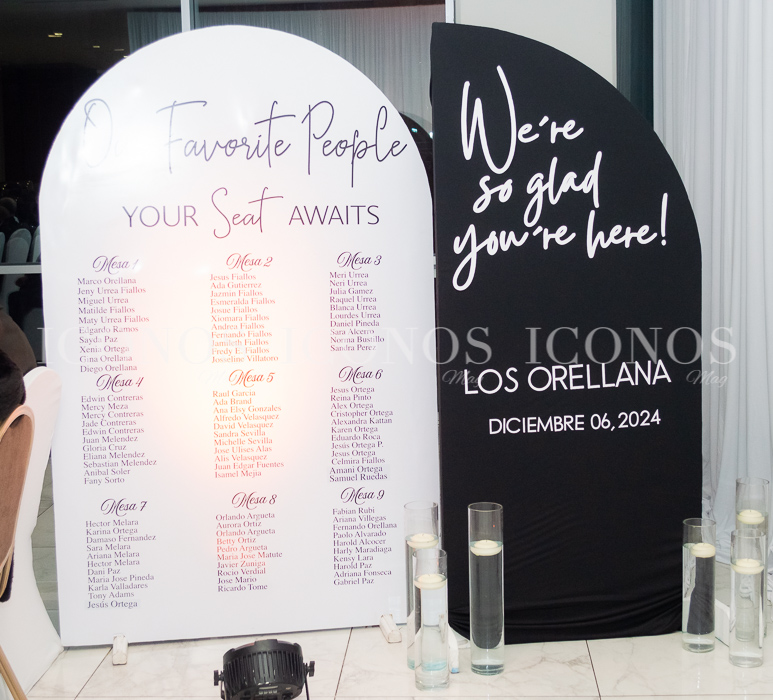 Our Favorite People
YOUR Seat AWAITS
Mesa 1
Marco Orellana
Jeny Urrea Fiallos
Miguel Urrea
Matilde Fiallos
Maty Urrea Fiallos
Edgardo Ramos
Sayda Paz
Xenia Ortega
Gina Orellana
Diego Orellana
Mesa 2
Jesus Fiallos
Ada Gutierrez
Jazmin Fiallos
Esmeralda Fiallos
Josue Fiallos
Xiomara Fiallos
Andrea Fiallos
Fernando Fiallos
Jamileth Fiallos
Fredy E. Fiallos
Josseline Villatoro
Mesa 3
Meri Urrea
Neri Urrea
Julia Gamez
Raquel Urrea
Blanca Urrea
Lourdes Urrea
Daniel Pineda
Sara Alcerro
Norma Bustillo
Sandra Perez
Mesa 4
Edwin Contreras
Mercy Meza
Mercy Contreras
Jade Contreras
Edwin Contreras
Juan Melendez
Gloria Cruz
Eliana Melendez
Sebastian Melendez
Anibal Soler
Fany Sorto
Mesa 5
Raul Garcia
Ada Brand
Ana Elsy Gonzales
Alfredo Velasquez
David Velasquez
Sandra Sevilla
Michelle Sevilla
Jose Ulises Alas
Alis Velasquez
Juan Edgar Fuentes
Isamel Mejia
Mesa 6
Jesus Ortega
Reina Pinto
Alex Ortega
Cristopher Ortega
Alexandra Kattan
Karen Ortega
Eduardo Roca
Jesús Ortega P.
Jesus Ortega
Celmira Fiallos
Amani Ortega
Samuel Ruedas
Mesa 7
Hector Melara
Karina Ortega
Damaso Fernandez
Sara Melara
Ariana Melara
Hector Melara
Dani Paz
Maria Jose Pineda
Karla Valladares
Tony Adams
Jesús Ortega
Mesa 8
Orlando Argueta
Aurora Ortiz
Orlando Argueta
Betty Ortiz
Pedro Argueta
Maria Jose Matute
Javier Zuniga
Rocio Verdial
Jose Mario
Ricardo Tome
Mesa 9
Fabian Rubi
Ariana Villegas
Fernando Orellana
Paolo Alvarado
Harold Alcocer
Harly Maradiaga
Kensy Lara
Harold Paz
Adriana Fonseca
Gabriel Paz
We're
so glad
you're here!
LOS ORELLANA
DICIEMBRE 06, 2024
ICONOS ICONOS
Mag Mag